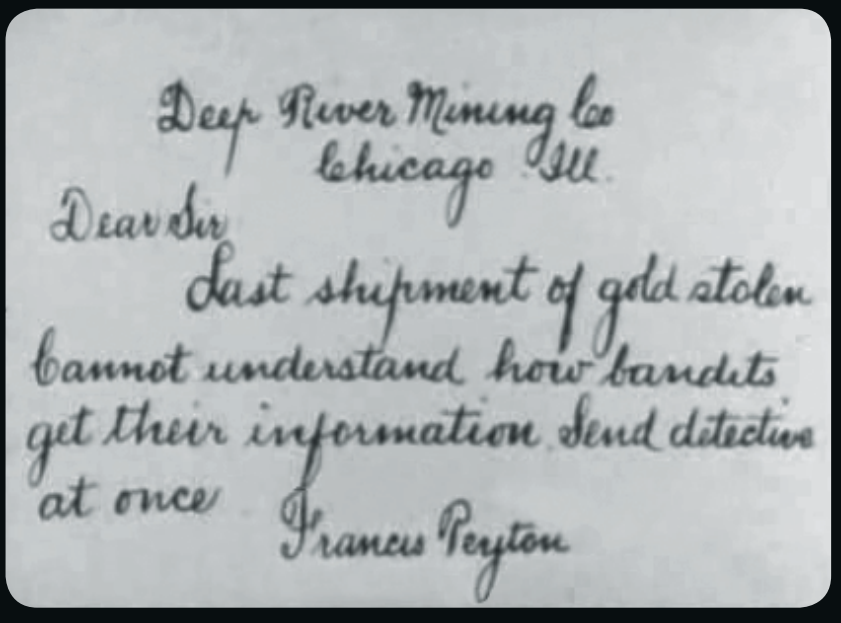 Deep River Mining Co
Chicago Ill.
Dear Sir
Last shipment of gold stolen
Cannot understand how bandits
get their information. Send detective
at once
Francis Peyton